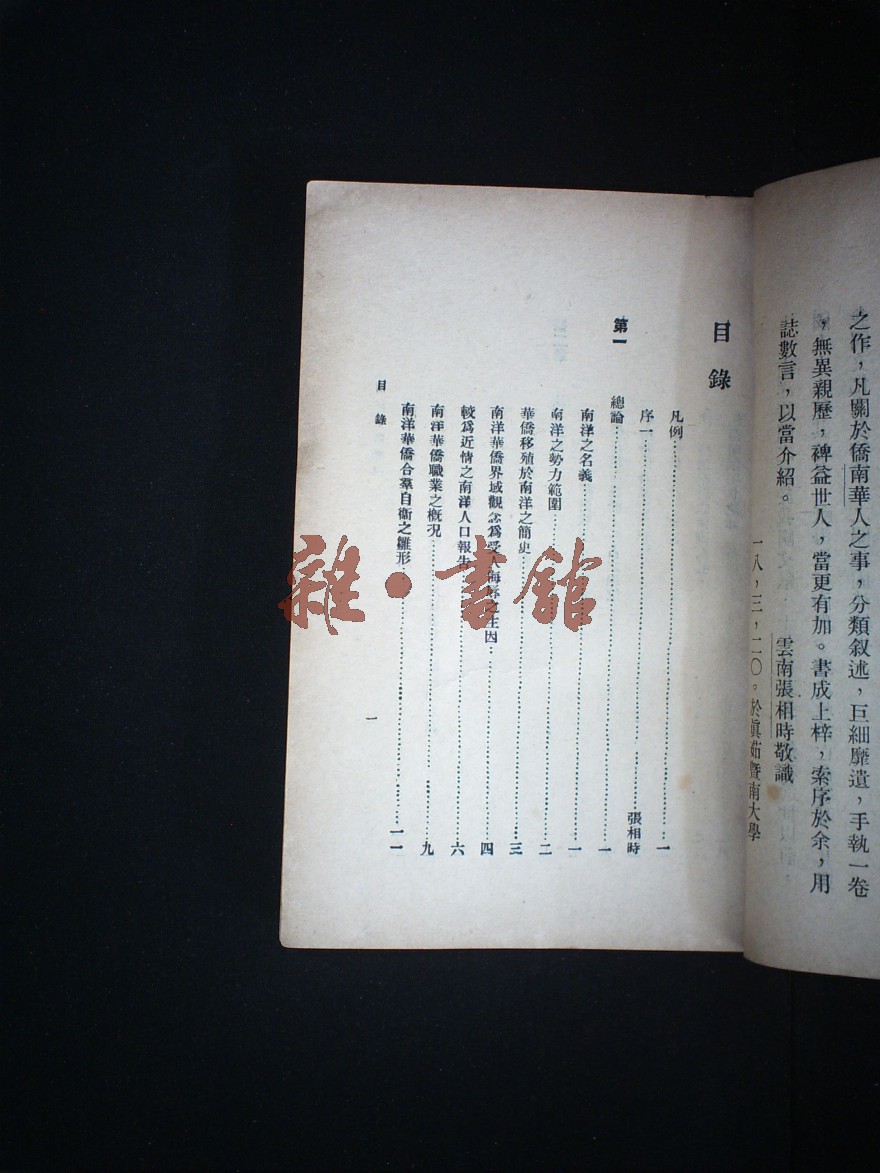 之作，凡關於僑南華人之事，分類叙述，巨細靡遺，手執一卷
，無異親歷，裨益世人，當更有加。書成上梓，索序於余，用
誌數言，以當介紹。
雲南張相時敬識
一八，三，二〇。於眞茹暨南大學
目錄
凡例 一
序一 張相時
第一 總論 一
南洋之名義 一
南洋之勢力範圍 二
華僑移殖於南洋之簡史 三
南洋華僑界域觀念爲受人侮辱之主因 四
較爲近情之南洋人口報告 六
南洋華僑職業之概況 九
南洋華僑合羣自衞之雛形 一一
目錄
一
雜·書館